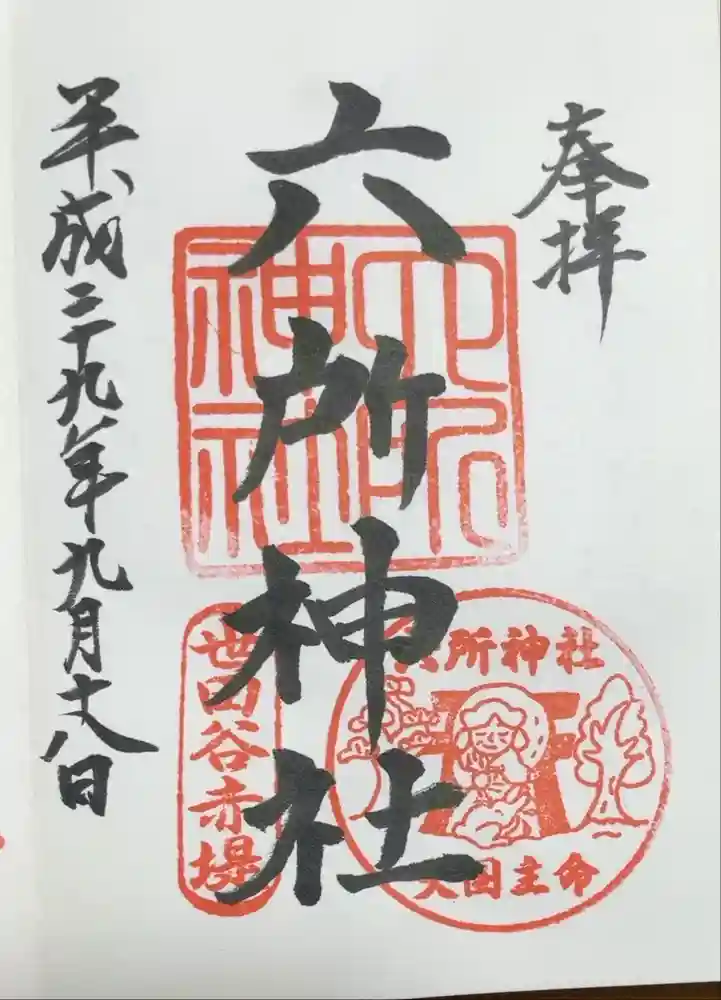 奉拝
六所神社
平成二十九年九月十八日
六所
神社
世田谷赤堤
六所神社
大国主命